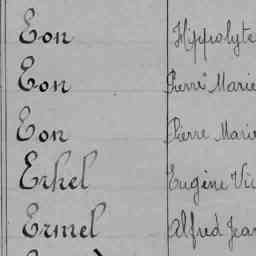 Eon Hippolyte
Eon Pierre Marie
Eon Pierre Marie
Erhel Eugène Vic
Ermel Alfred Jean